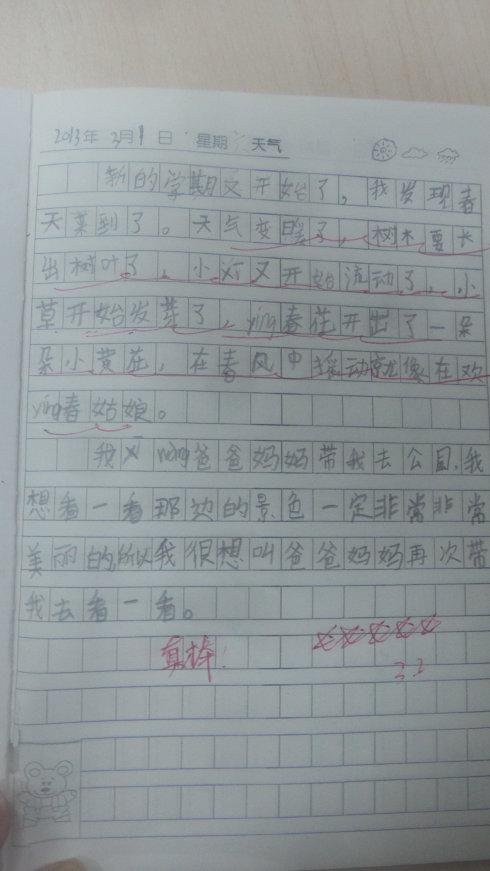 2013年3月1日 星期 天气
新的学期又开始了，我发现春
天莱到了。天气变暖了，树木要长
出树叶了，小河又开始流动了，小
草开始发芽了，yíng春花开出了一朵
朵小黄花，在春风中摇动就像在欢
yíng春姑娘。
我希ng爸爸妈妈带我去公园，我
想看一看那边的景色一定非常非常
美丽的，所以我很想叫爸爸妈妈再次带
我去看一看。
真棒！
3.2